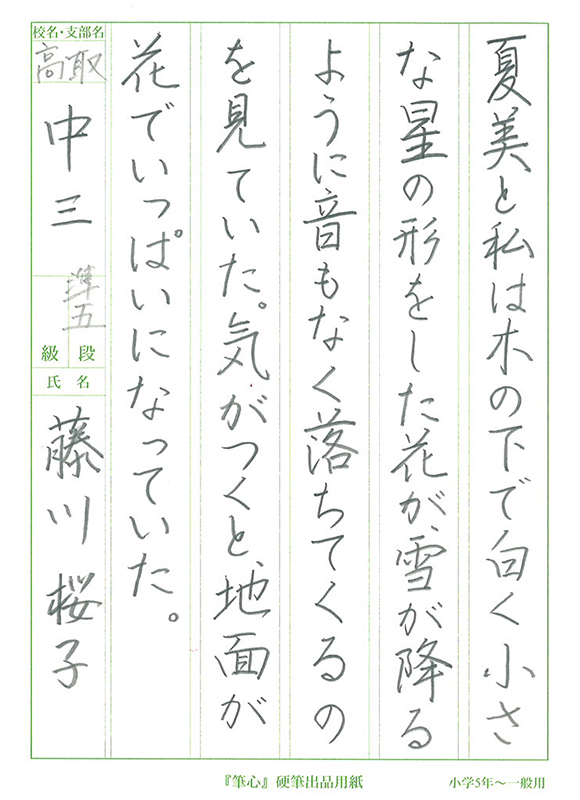 夏美と私は木の下で白く小さ
な星の形をした花が、雪が降る
ように音もなく落ちてくるの
を見ていた。気がつくと、地面が
花でいっぱいになっていた。
校名・支部名
高取
中三
準五
級 段
氏 名
藤川桜子
『筆心』硬筆出品用紙
小学5年〜一般用